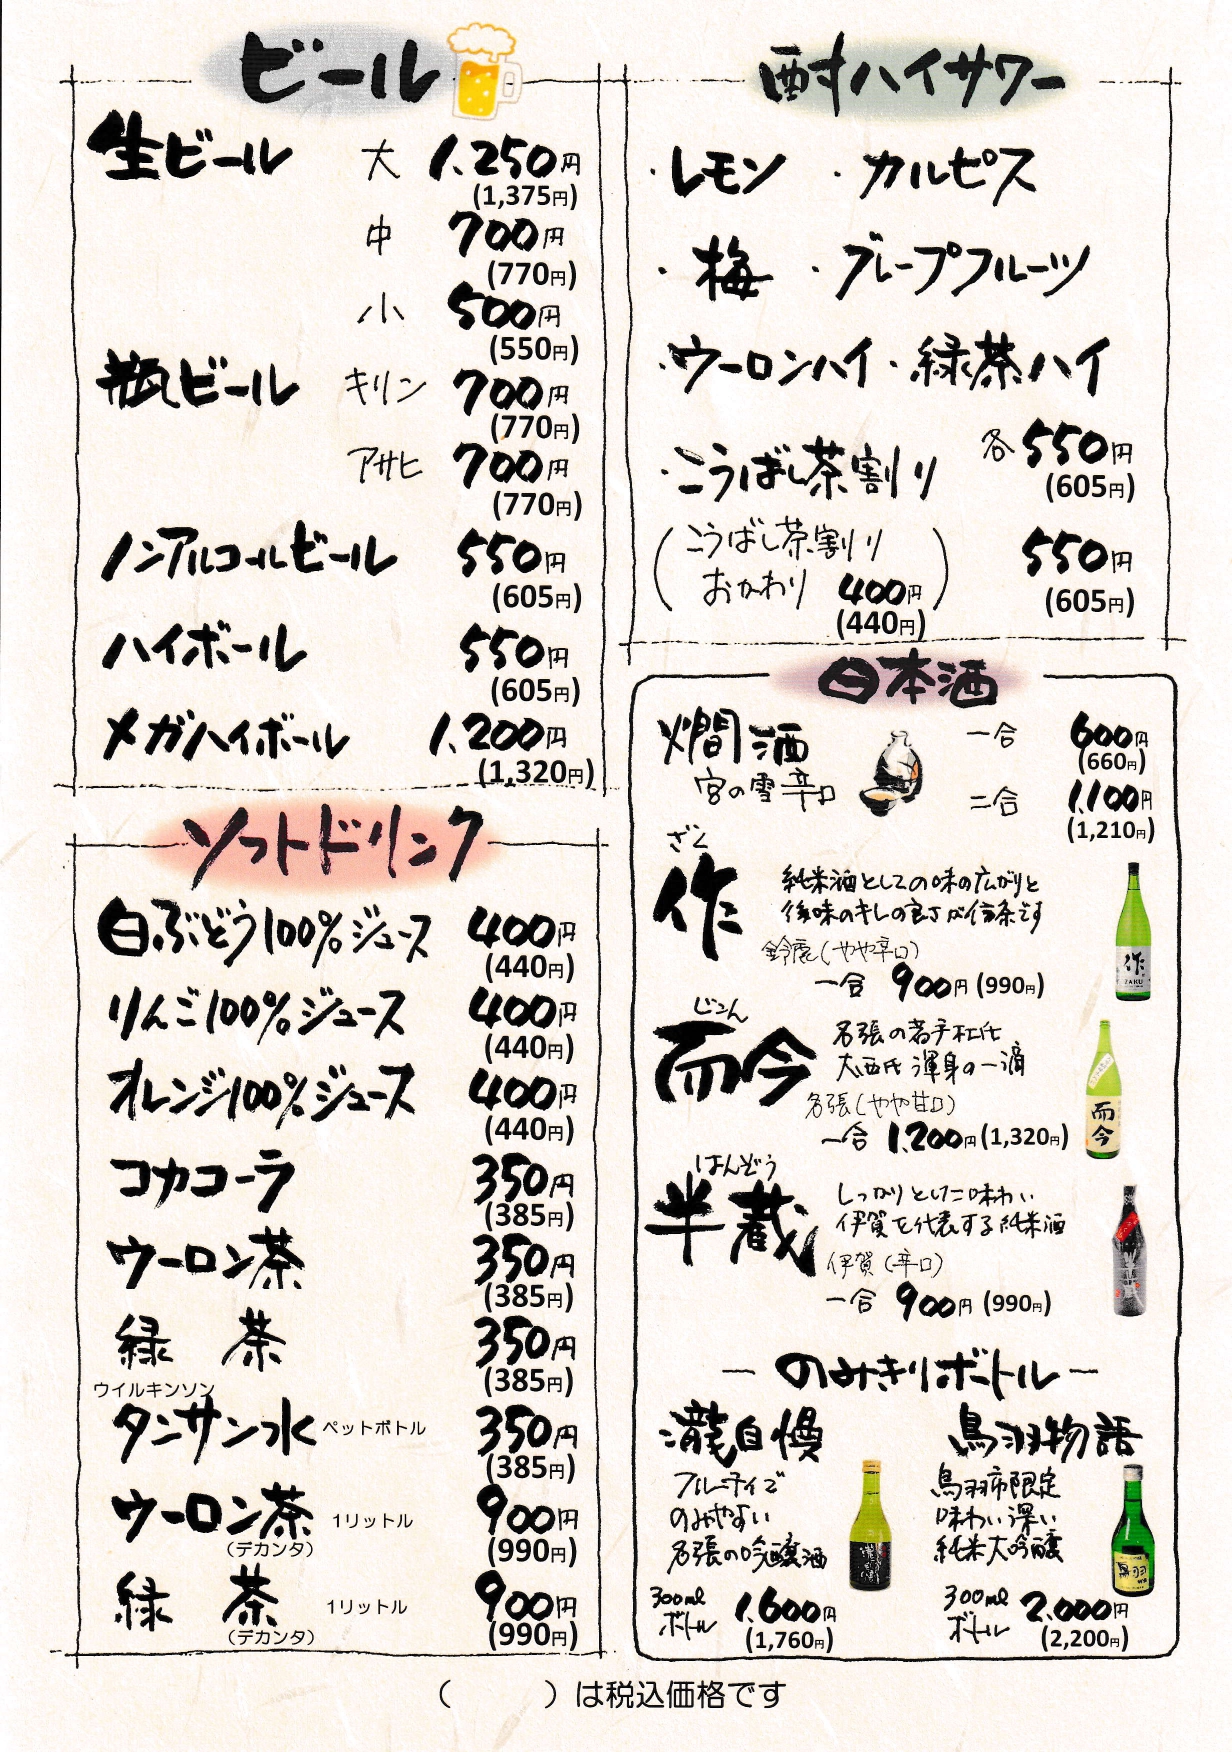 ビール
生ビール 大 1,250円
(1,375円)
中 700円
(770円)
小 500円
(550円)
瓶ビール キリン 700円
(770円)
アサヒ 700円
(770円)
ノンアルコールビール 550円
(605円)
ハイボール 550円
(605円)
メガハイボール 1,200円
(1,320円)
ソフトドリンク
白ぶどう100%ジュース 400円
(440円)
りんご100%ジュース 400円
(440円)
オレンジ100%ジュース 400円
(440円)
コカコーラ 350円
(385円)
ウーロン茶 350円
(385円)
緑 茶 350円
(385円)
ウイルキンソン
タンサン水 ペットボトル 350円
(385円)
ウーロン茶 1リットル 900円
(デカンタ) (990円)
緑 茶 1リットル 900円
(デカンタ) (990円)
酎ハイサワー
・レモン ・カルピス
・梅 ・グレープフルーツ
・ウーロンハイ・緑茶ハイ
各550円
(605円)
・こうばし茶割り
550円
(605円)
(こうばし茶割り
おかわり 400円)
(440円)
日本酒
燗酒 一合 600円
(660円)
宮の雪 辛口 二合 1,100円
(1,210円)
ざく
作
純米酒としての味の広がりと
後味のキレの良さが信条です
鈴鹿(やや辛口)
一合 900円(990円)
作
ZAKU
じこん
而今
名張の若手杜氏
大西氏渾身の一滴
名張(やや甘口)
一合 1,200円(1,320円)
而今
はんぞう
半蔵
しっかりとした味わい
伊賀を代表する純米酒
伊賀(辛口)
一合 900円(990円)
半蔵
－のみきりボトル－
瀧自慢
フルーティで
のみやすい
名張の吟醸酒
300ml
ボトル 1,600円
(1,760円)
鳥羽物語
鳥羽市限定
味わい深い
純米大吟醸
300ml
ボトル 2,000円
(2,200円)
鳥羽
( )は税込価格です